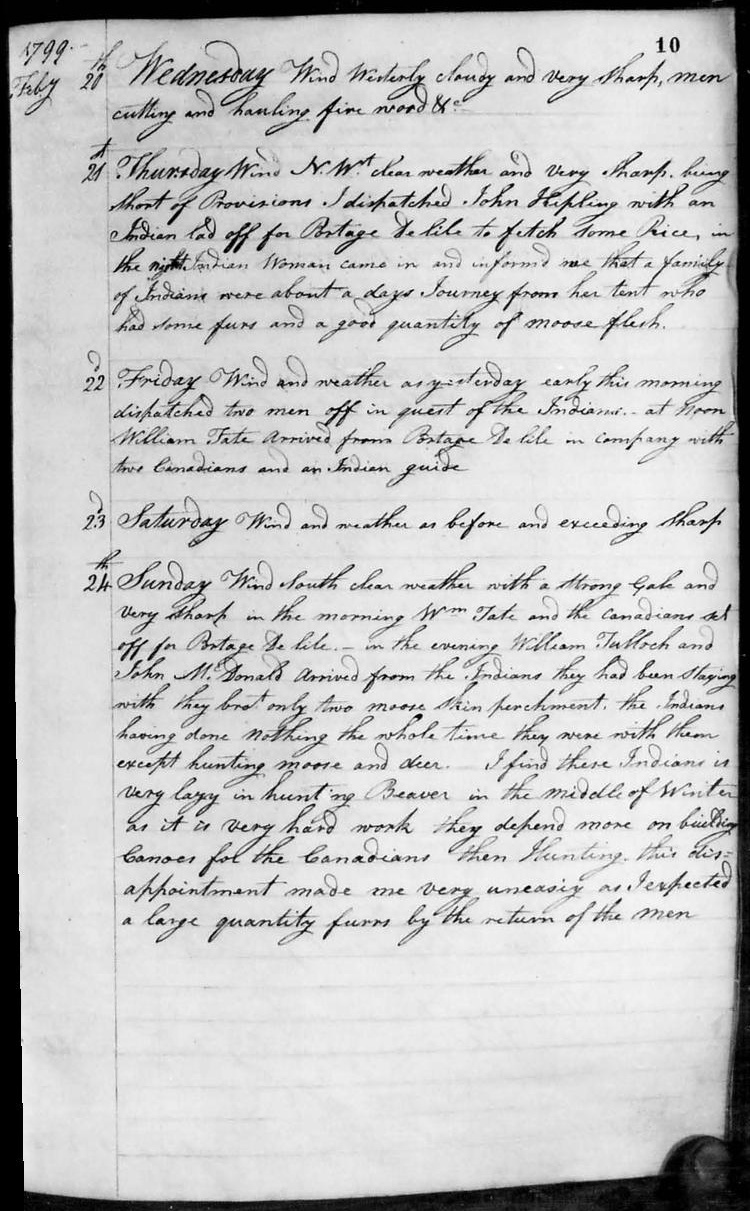 10
1799
Feby 20th Wednesday Wind Westerly cloudy and very sharp, men
cutting and hauling fire wood &c
21st Thursday Wind N. Wt clear weather and very sharp. being
short of Provisions I dispatched John Kipling with an
Indian lad off for Portage De lile to fetch some Rice, in
the night Indian Woman came in and inform'd me that a family
of Indians were about a days Journey from her tent who
had some furs and a good quantity of moose flesh.
22d Friday Wind and weather as yesterday early this morning
dispatched two men off in quest of the Indians - at Noon
William Tate arrived from Portage De lile in company with
two Canadians and an Indian guide
23d Saturday Wind and weather as before and exceeding sharp
24th Sunday Wind South clear weather with a strong Gale and
very sharp in the morning Wm Tate and the Canadians set
off for Portage De lile. - in the evening William Tulloch and
John Mc Donald arrived from the Indians they had been staying
with they brot only two moose skin perchment. the Indians
having done nothing the whole time they were with them
except hunting moose and deer. I find these Indians is
very lazy in hunting Beaver in the middle of Winter
as it is very hard work they depend more on building
Canoes for the Canadians then Hunting. this dis=
appointment made me very uneasiy as I expected
a large quantity furrs by the return of the men